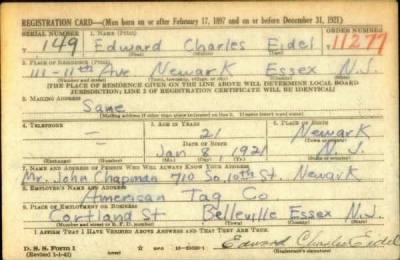 REGISTRATION CARD—(Men born on or after February 17, 1897 and on or before December 31, 1921)
SERIAL NUMBER 1. NAME (Print) ORDER NUMBER
T 149 Edward Charles Eidel 11279
2. PLACE OF RESIDENCE (Print)
111-11th Ave Newark Essex N.J.
(Number and street) (Town, township, village, or city) (County) (State)
[THE PLACE OF RESIDENCE GIVEN ON THE LINE ABOVE WILL DETERMINE LOCAL BOARD
JURISDICTION; LINE 2 OF REGISTRATION CERTIFICATE WILL BE IDENTICAL]
3. MAILING ADDRESS
Same
[Mailing address if other than place indicated on line 2. If same insert word same]
4. TELEPHONE 5. AGE IN YEARS 6. PLACE OF BIRTH
— 21 Newark
DATE OF BIRTH (Town or county)
— Jan 8, 1921 N.J.
(Exchange) (Number) (Mo.) (Day) (Yr.) (State or country)
7. NAME AND ADDRESS OF PERSON WHO WILL ALWAYS KNOW YOUR ADDRESS
Mr. John Chapman 710 So. 10th St. Newark
8. EMPLOYER'S NAME AND ADDRESS
American Tag Co
9. PLACE OF EMPLOYMENT OR BUSINESS
Cortland St Belleville Essex N.J.
(Number and street or R. F. D. number) (Town) (County) (State)
I AFFIRM THAT I HAVE VERIFIED ABOVE ANSWERS AND THAT THEY ARE TRUE.
D. S. S. Form 1 Edward Charles Eidel
(Revised 1-1-42) (over) (Registrant's signature)